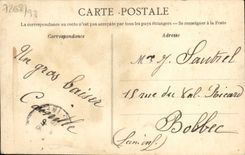 CARTE POSTALE
La correspondance au recto n'est pas acceptée par tous les pays étrangers — Se renseigner à la Poste
Correspondance
Adresse
Un gros baiser
Camille
Mr J. Sautrel
15 rue du Val-Ricard
Bolbec
(Seine inf)